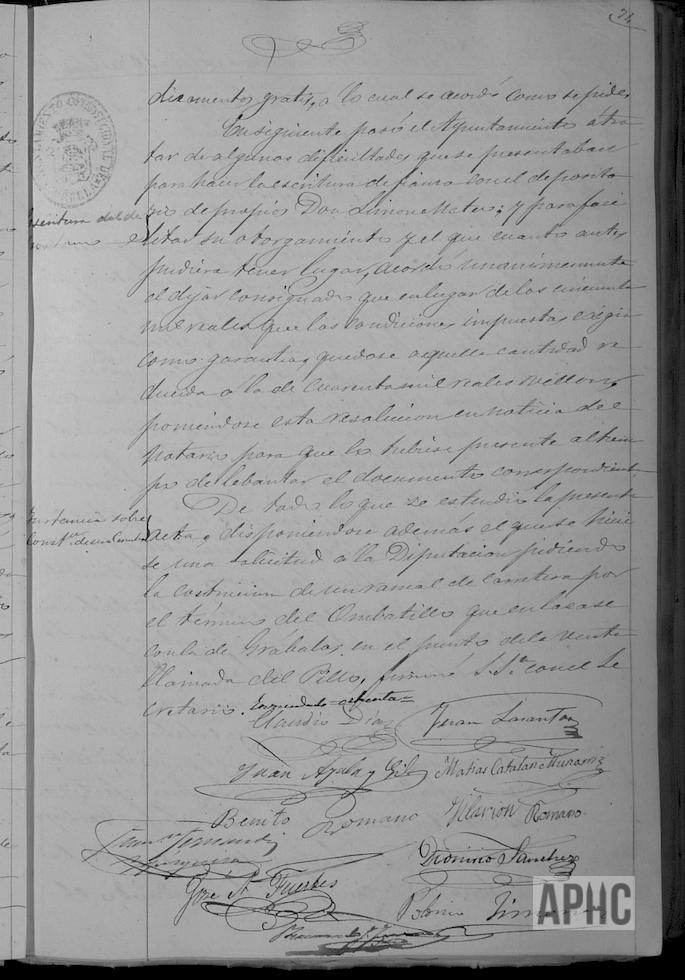 74
dicamentos gratis, a lo cual se acordó como se pide.
Enseguente pasó el Ayuntamiento á tra
tar de algunas dificultades que se presentaban
para hacer la escritura de fianza con el deposita
rio de propios Don Simon Mateo; y para faci
litar su otorgamiento y el que cuanto antes
pudiera tener lugar, acordó unanimemente
el dejar consignado que en lugar de los cincuenta
mil reales que las condiciones impuestas exigia
como garantia, quedase aquella cantidad re
ducida a la de cuarenta mil reales vellon,
poniendose esta resolucion en noticia del
para que lo tubiese presente al tiem
po de lebantar el documento correspondiente
Instancia sobre
De todo lo que se estendió la presente
acta y disponiendose además el que se hicie
se una solicitud a la Diputacion pidiendo
la costruccion de un ramal de carretera por
el término del Ombatillo que enlazase
con la de Grábalos en el punto de la venta
llamada del Pillo, firmó S.Sª con el Se
cretario. Enmendado
Claudio Diaz
Juan
Juan Ayala y Gil
Matias Catalan
Benito Romano
Ylarion Romano
Dionisio Sanchez
José Mª Fuertes
APHC